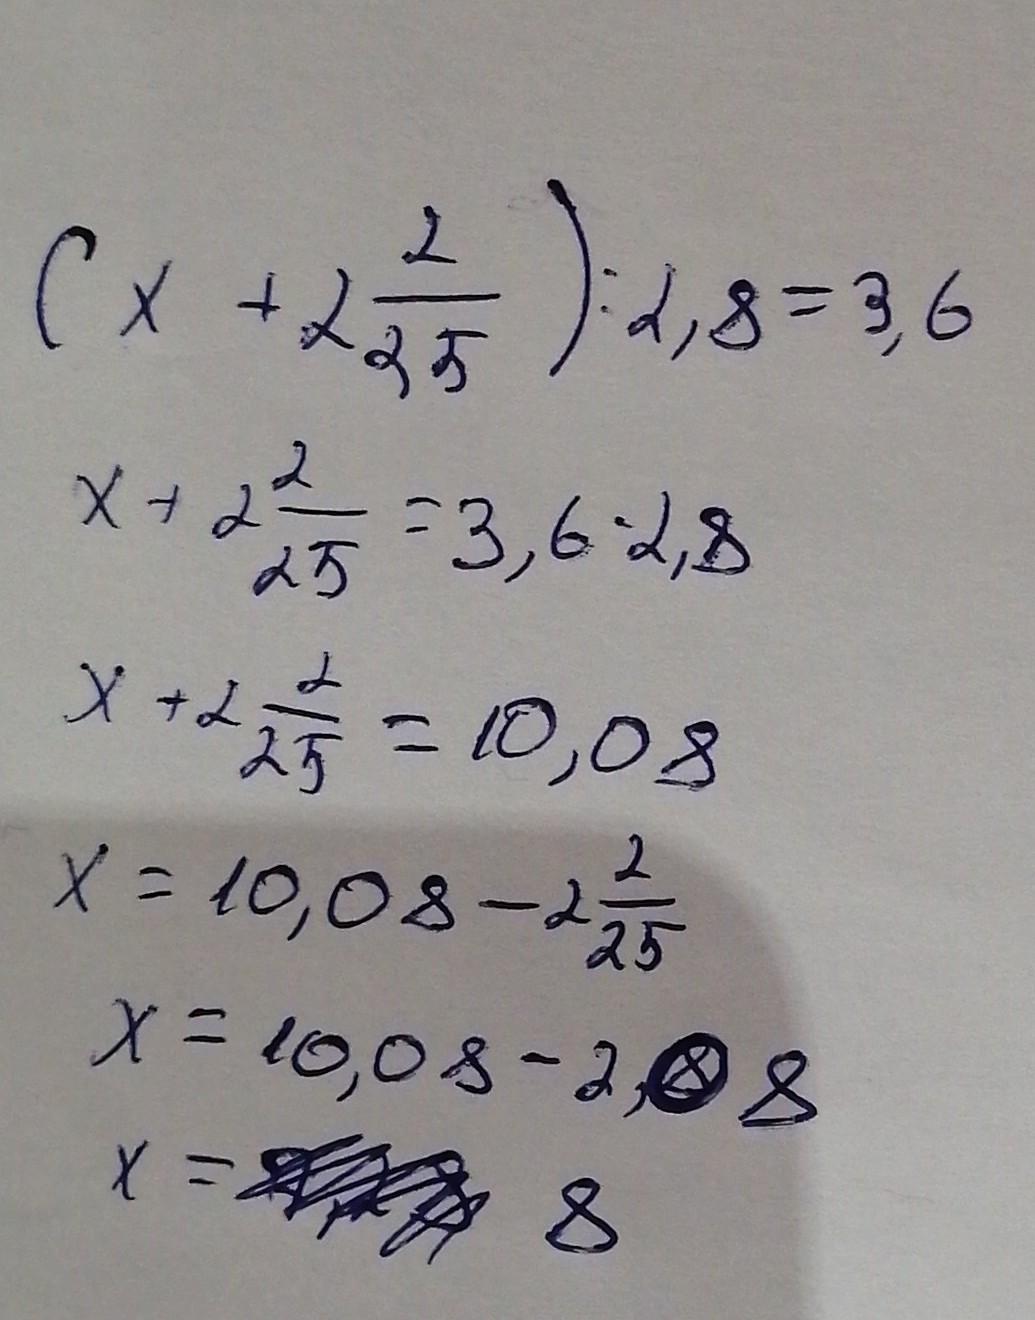 (x + 2 2/25) : 2,8 = 3,6
x + 2 2/25 = 3,6 · 2,8
x + 2 2/25 = 10,08
x = 10,08 − 2 2/25
x = 10,08 − 2,08
x = 8